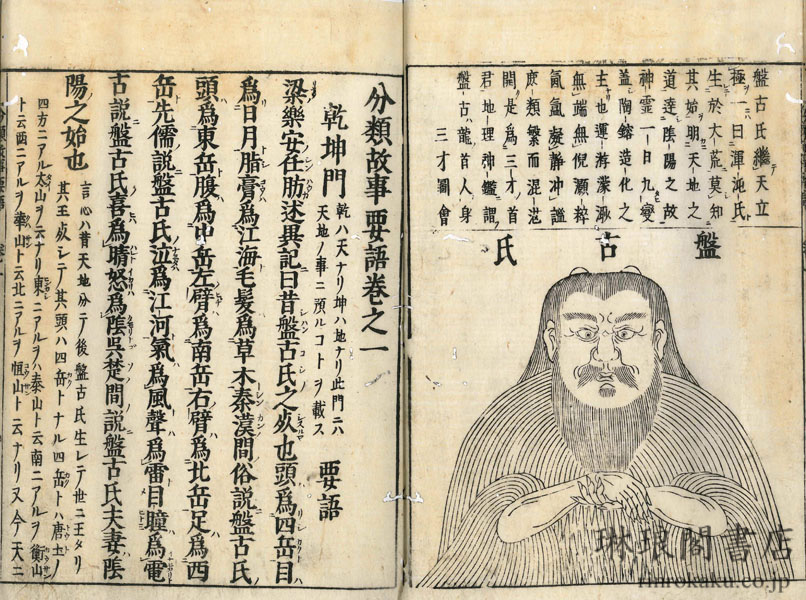 盤古氏繼天立
極一曰渾沌氏
生於大荒莫知
其始明天地之
道達陰陽之故
神靈一日九變
蓋陶鎔造化之
主也運游濛澥
無端無倪灝粹
氤氳凝静冲謐
庶類繁而混沌
開是爲三才首
君地理神鑑謂
盤古龍首人身
三才圖會
盤古氏
分類故事要語卷之一
乾坤門 乾ハ天ナリ坤ハ地ナリ此門ニハ
天地ノ事ニ預ルコトヲ載ス 要語
梁樂安任昉述異記曰昔盤古氏之死也頭爲四岳目
爲日月脂膏爲江海毛髮爲草木秦漢間俗説盤古氏
頭爲東岳腹爲中岳左臂爲南岳右臂爲北岳足爲西
岳先儒説盤古氏泣爲江河氣爲風聲爲雷目瞳爲電
古説盤古氏喜爲晴怒爲陰呉楚間説盤古氏夫妻陰
陽之始也 言心ハ昔天地分テ後盤古氏生レテ世ニ王タリ
其王死シテ其頭ハ四岳トナル四岳トハ唐土ノ
四方ニアル太山ヲ云ナリ東ニアルヲハ泰山ト云南ニアルヲ衡山
ト云西ニアルヲ華山ト云北ニアルヲ恒山ト云ナリ又今天ニ
琳琅閣書店
rinrokaku.co.jp